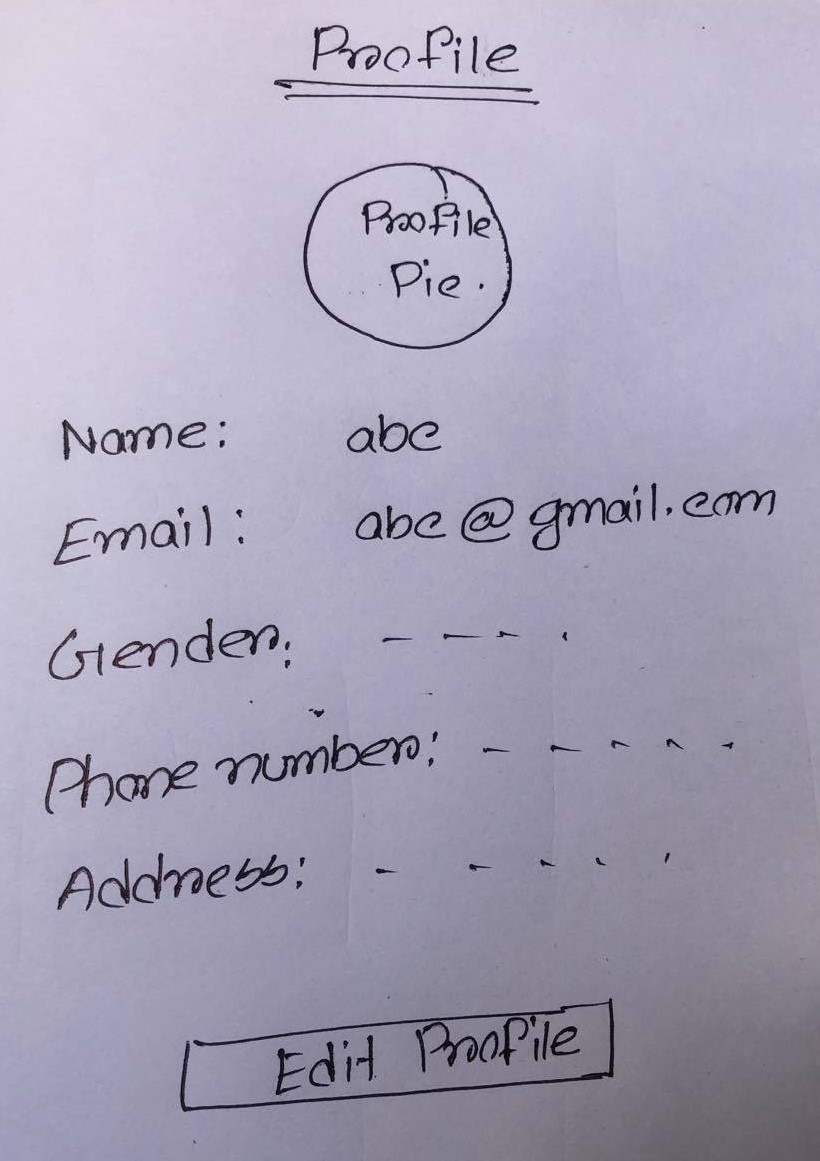 Profile
Profile
Pic.
Name: abc
Email: abc@gmail.com
Gender: - - - .
Phone number: - - - - -
Address: - - - - -
Edit Profile